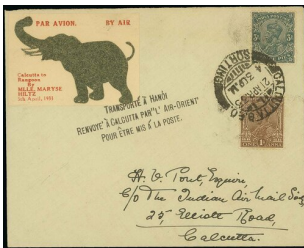 PAR AVION. BY AIR
Calcutta to
Rangoon
By
MLLE. MARYSE
HILTZ
April, 1931
TRANSPORTÉ À HANOÏ
RENVOYÉ À CALCUTTA PAR "L' AIR-ORIENT"
POUR ÊTRE MIS À LA POSTE.
CALCUTTA
H. V. Pont, Esquire,
C/o The Indian Air Mail Soc
25, Elliott Road,
Calcutta.